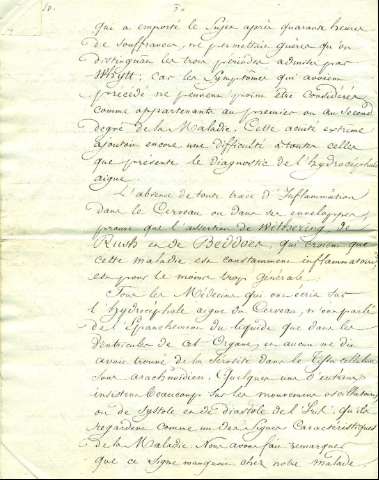 10.
qui a emporté le Sujet après quarante heures
de Souffrances, ne permettait guères qu'on
distinguat les trois périodes admises par
Whytt: car les Symptômes qui avoient
precedé ne peuvent point être considérés
comme appartenants au premier ou au Second
degré de la Maladie. Cette acuité extreme
ajoutait encore une difficulté à toutes celles
que présente le diagnostic de l'hydrocéphale
aigue
L'absence de toute trace d'Inflammation
dans le Cerveau ou dans ses enveloppes,
prouve que l'assertion de Withering, de
Rush et de Beddoes, qui croient que
cette maladie est constamment inflammatoire
est pour le moins trop générale.
Tous les Médecins qui ont écrit sur
l'hydrocéphale aigue du Cerveau, n'ont parlé
de l'épanchement du liquide que dans les
Ventricules de cet Organe, et aucun ne dit
avoir trouvé de la Serosité dans le tissu cellulaire
sous arachnoidien. Quelques uns d'entreux
insistent beaucoup sur les mouvements oscillatoires
ou de Systole et de diastole de l'Iris. Qu'ils
regardent comme un des Signes Caractéristiques
de la Maladie. Nous avons fait remarquer
que ce Signe manquait chez notre malade.